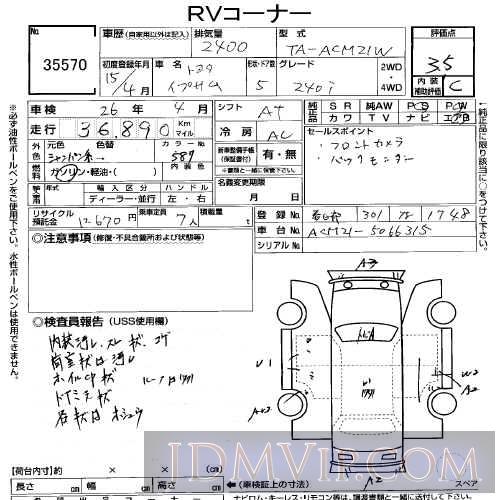 RVコーナー
No.
35570
車歴 (自家用以外は記入)
排気量
2400
型式
TA-ACM21W
評価点
3.5
内装
補助評価
C
初度登録年月
15/4月
車名
トヨタ
イプサム
形状・ドア数
5
グレード
240i
2WD
・
4WD
車検
26年 4月
シフト
AT
走行
36,890
Km
マイル
冷房
AC
純正品
SR 純AW PS PW
カワ TV ナビ エアB
外色
元色 色替 カラー No.
シャンパン系→
589
内装色
燃料
ガソリン・軽油・( )
新車整備手帳
(保証書付)
有・無
※書類と一緒に保管下さい。
セールスポイント
・フロントカメラ
・バックモニター
輸入区分 ハンドル
ディーラー・並行 左・右
名義変更期限
月 日
リサイクル
預託金
12,670円
乗車定員
7人
積載量
t
登録No.
301 1748
車台No.
ACM21-5066315
シリアルNo.
◎注意事項 (修復・不具合箇所および状態等)
◎検査員報告 (USS使用欄)
ホイルCP状
A3
U1
W2
A2
A2
【荷台内寸】約 × × (cm)
長さ cm 幅 cm 高さ cm
←(車検証上の寸法)
スペア
ナビロム・キーレス・リモコン等は、譲渡書類と一緒に
※必ず油性ボールペンをご使用下さい。水性ボールペンは使用できません。
↑純正品に限り該当に○をつけて下さい。
JDMVIP.COM